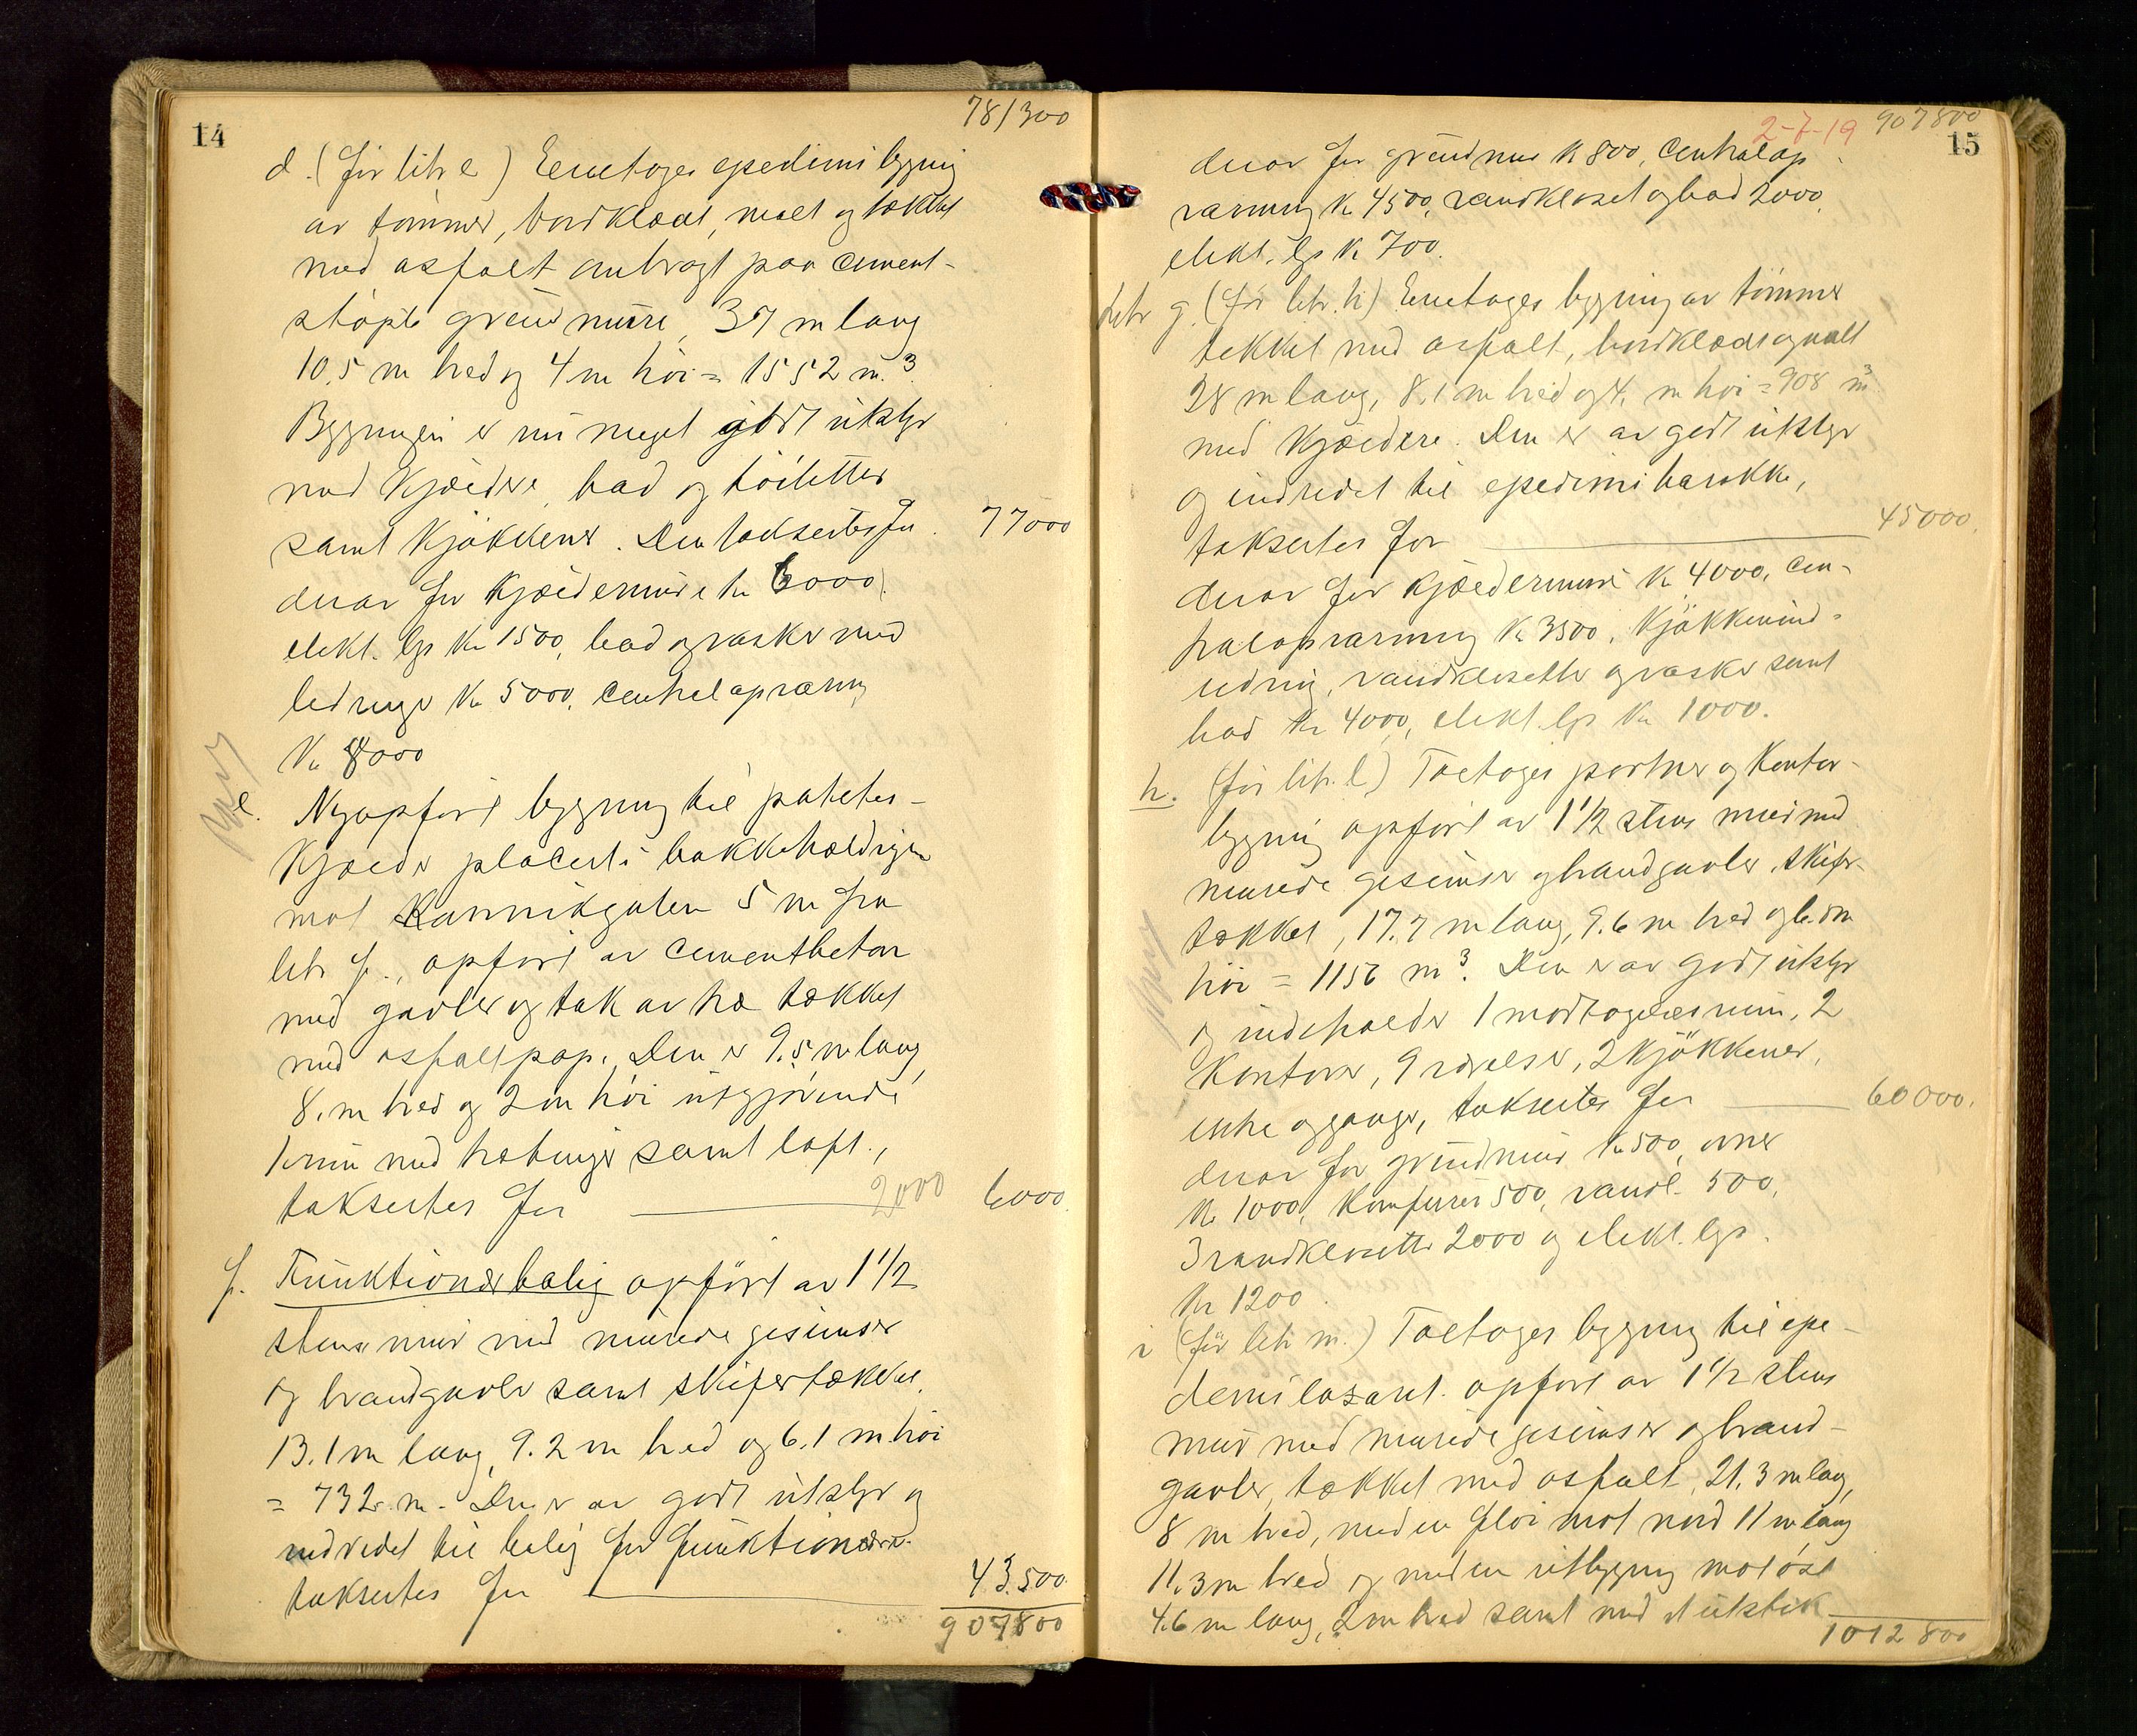 14
781300
d. (för litr e) Eenetages epedemi bygning
av tömmer, bordklædt, malt og tækket
med asfalt anbragt paa cement-
stöpte grundmure, 37 m lang
10,5 m bred og 4 m höi = 1552 m.3
Bygningen er nu meget godt utstyr
med Kjælder, bad og toiletter
samt Kjökkener. Den taksertes for 77000
derav for Kjældermure kr 6000
elekt. lys Kr 1500, bad og vasker med
ledninger Kr 5000, centralopvarmn
Kr 8000
e. Nyopfört bygning til potetes-
Kjælder placert i bakkeheldingen
mot Kannikgaten 5 m fra
litr f., opfört av cementbeton
med gavler og tak av træ tækket
med asfaltpap. Den er 9.5 m lang
8. m bred og 2 m höi utgjörende
1 rum med samt loft.,
taksertes for 2000 6000.
f. Funktionærbolig opfört av 1 1/2
stens mur med murede gesimser
og brandgavler samt skifertækket.
13.1 m lang, 9.2 m bred og 6.1 m höi
= 732 m. Den er av godt utstyr og
indredet til bolig for funktionærer.
taksertes for 43.500
907800
15
2-7-19
907800
derav for grundmur K 800, centralop
varming Kr 4500, vandkloset og bad 2000,
elekt. lys Kr 700.
Litr g. (för litr. h) Eenetages bygning av tömmer
tekket med asfalt, bordklædt og malt
28 m lang, 8.1 m bred og 4. m höi = 908 m3
med Kjældere. Den er av godt utstyr
og indredet til epedemi barakke,
taksertes for 45000.
derav for Kjældermur Kr 4000, cen-
tralopvarming Kr 3500, Kjökkenind-
redning, vandklosetter og vasker samt
bad Kr 4000, elekt. lys Kr 1000.
h. (för litr. l) Toetages portner og Kontor-
bygning opfört av 1 1/2 stens mur med
murede gesimser og brandgavler, skifer-
tækket, 17.7 m lang, 9.6 m bred og 6.8 m
höi = 1156 m3. Den er av godt utstyr
og indeholder 1 modtagelsesrum, 2
Kontorer, 9 værelser, 2 Kjökkener,
entre og gange, taksertes for 60000.
derav for grundmur Kr 500, ovner
Kr 1000, Komfurer 500, vandl. 500,
3 vandklosetter 2000 og elekt. lys.
Kr 1200
i (för litr m.) Toetages bygning til epe-
demilasaret. opfört av 1 1/2 stens
mur med murede gesimser og brand-
gavler, tækket med asfalt, 21.3 m lang,
8 m bred, med en flöi mot nord 11 m lang
11.3 m bred og med en utbygning mot öst
4.6 m lang, 2 m bred samt med et utstik
1012800